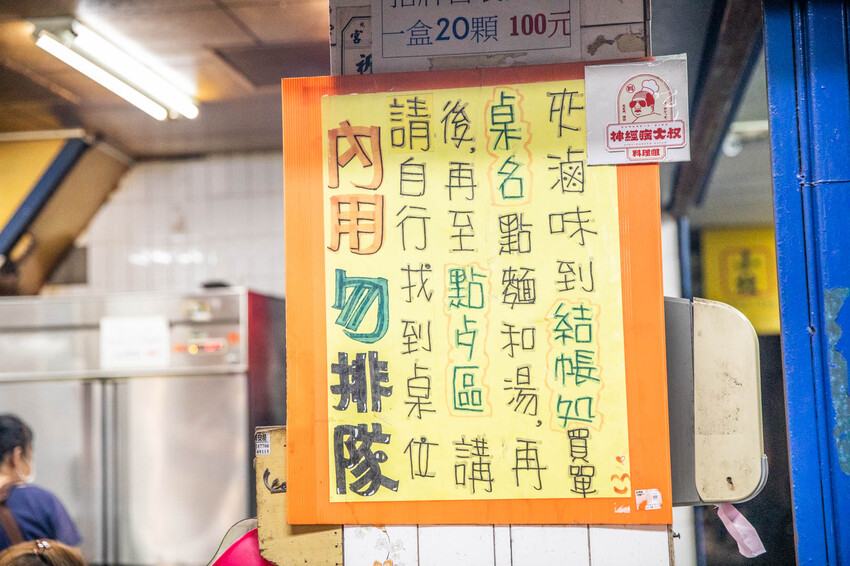 一盒20顆 100元
內用勿排隊
請自行找到桌位
後,再至點歺區講
桌名點麵和湯,再
夾滷味到結帳処買單
神經病大叔